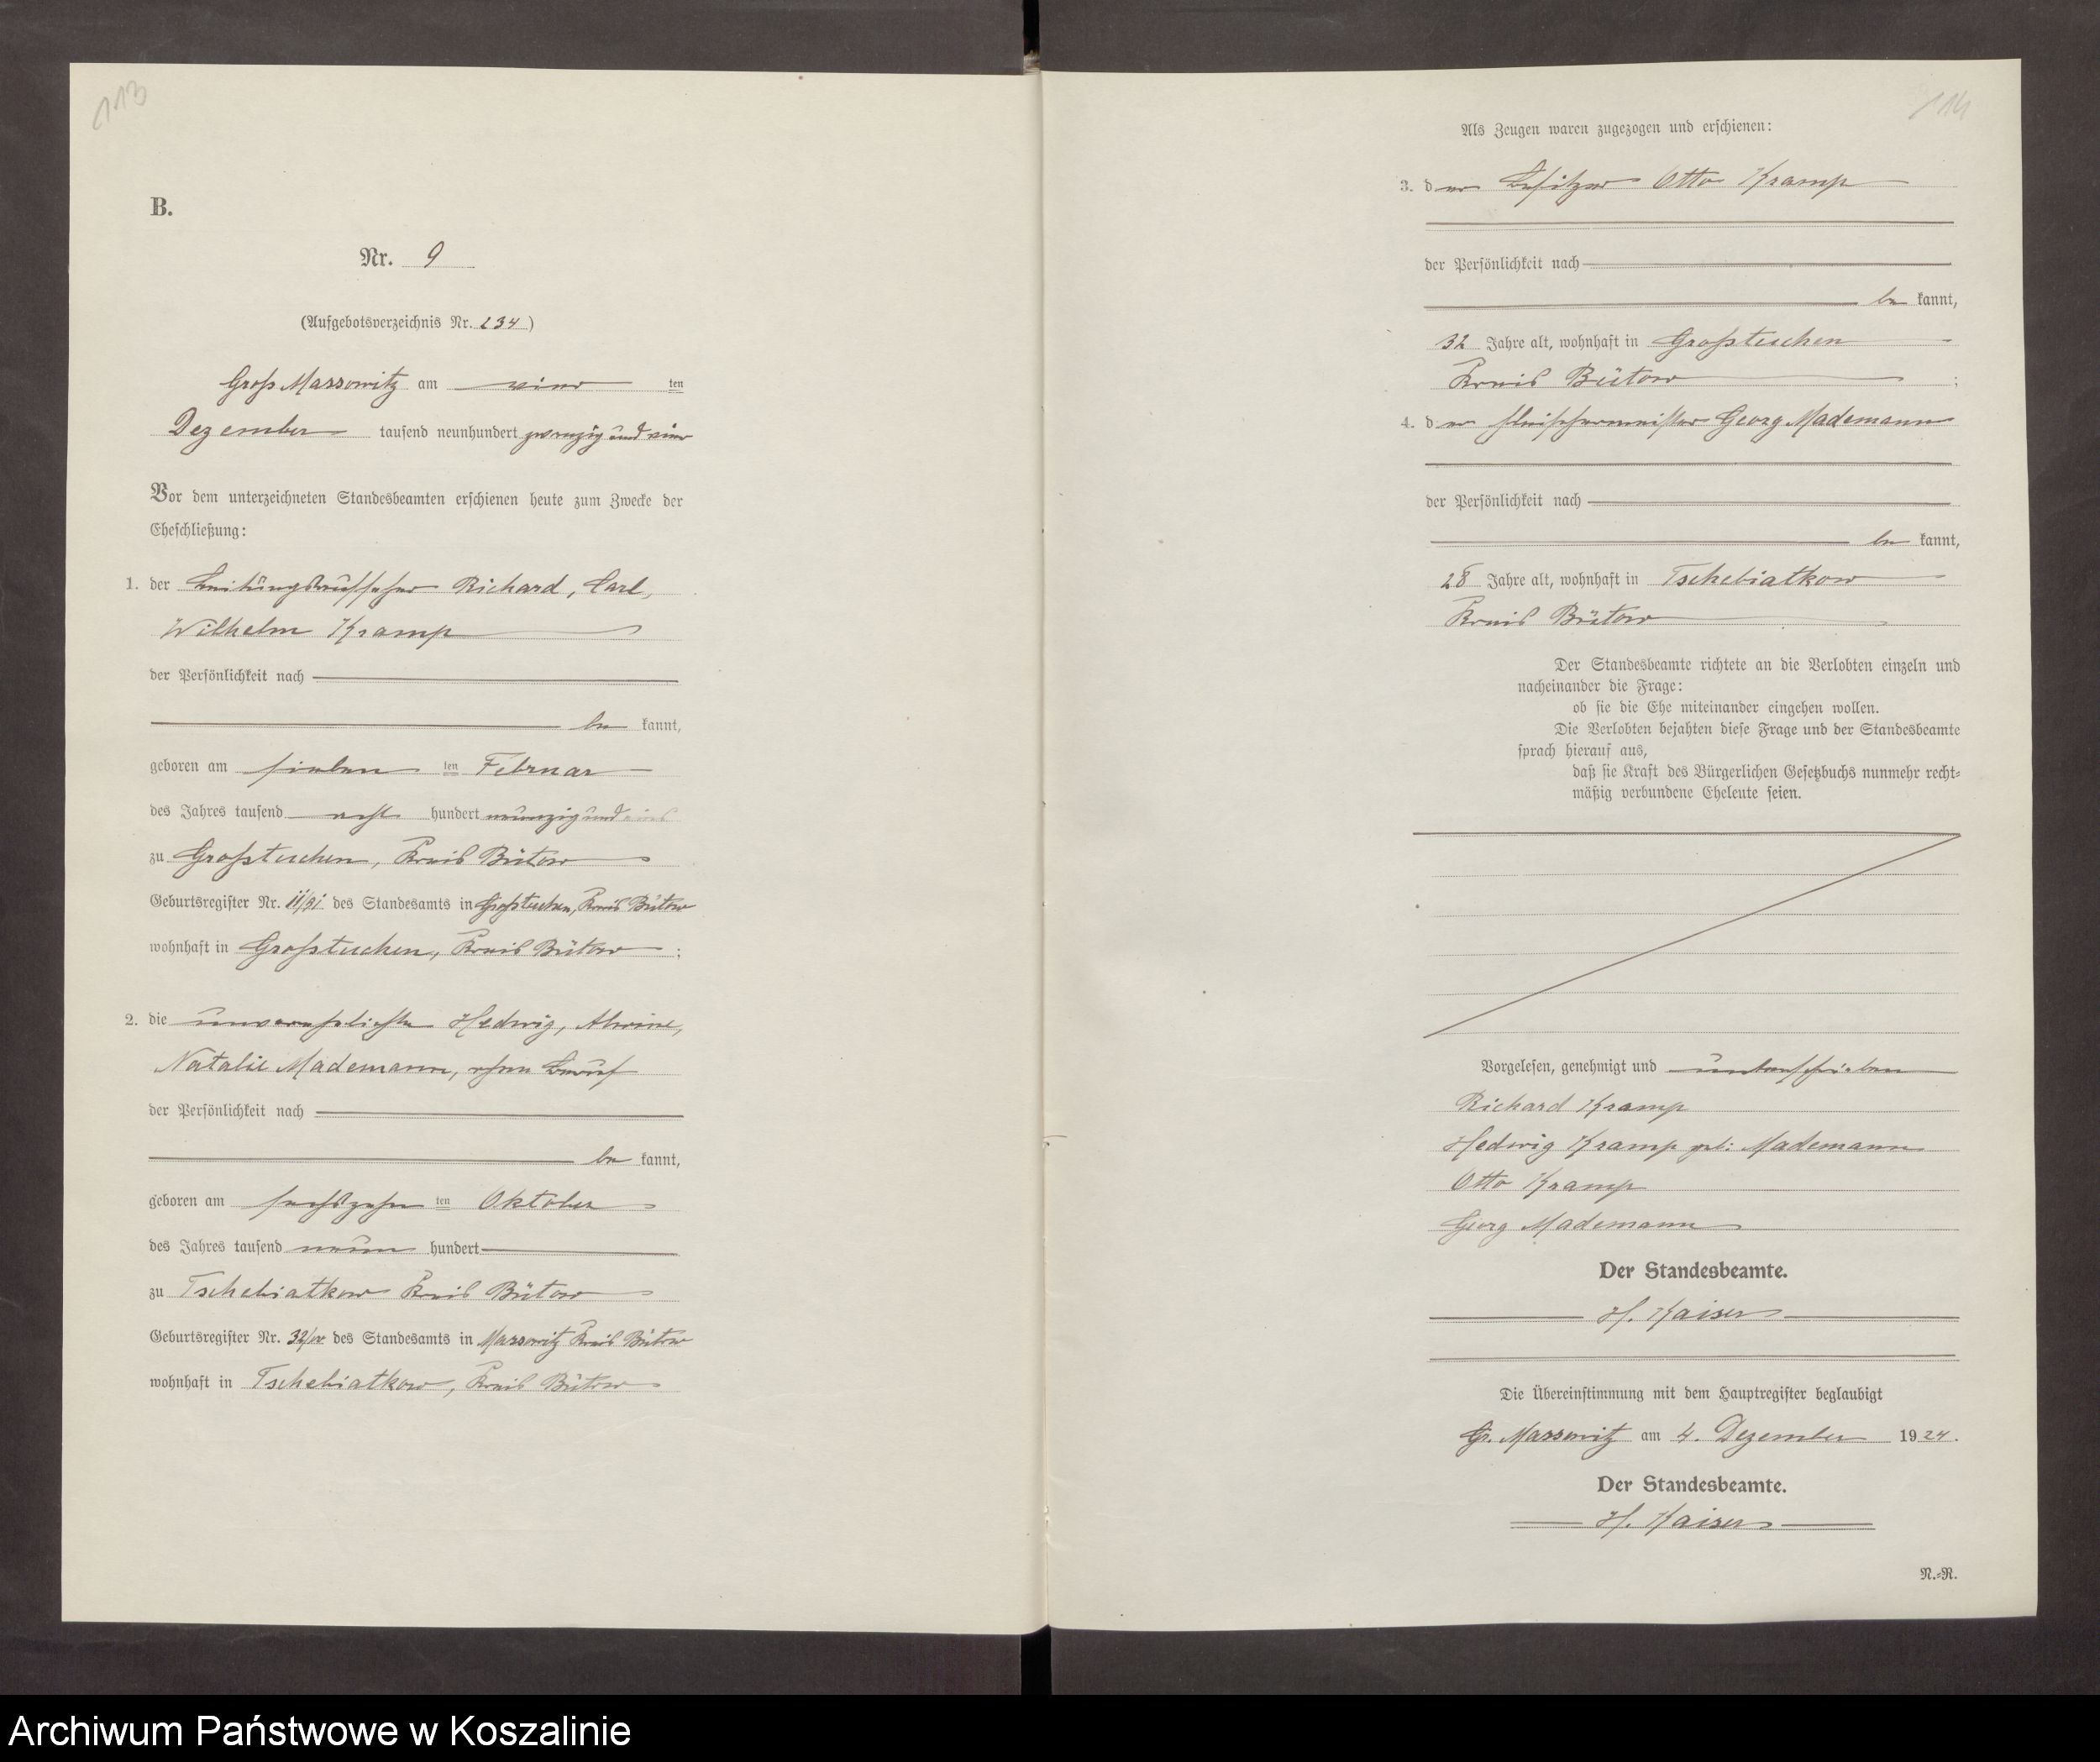 113
B.
Nr. 9
(Aufgebotsverzeichnis Nr. 134)
Groß Massowitz am vier ten
Dezember tausend neunhundert zwanzig und vier
Vor dem unterzeichneten Standesbeamten erschienen heute zum Zwecke der
Eheschließung:
1. der Leitungsaufseher Richard, Carl,
Wilhelm Kramp
der Persönlichkeit nach
be kannt,
geboren am sieben ten Februar
des Jahres tausend acht hundert neunzig und eins
zu Großtuchen, Kreis Bütow
Geburtsregister Nr. 11/91 des Standesamts in Großtuchen, Kreis Bütow
wohnhaft in Großtuchen, Kreis Bütow ;
2. die unverehelichte Hedwig, Alwine,
Natalie Mademann, ohne Beruf
der Persönlichkeit nach
be kannt,
geboren am sechszehn ten Oktober
des Jahres tausend neun hundert
zu Tschebiatkow Kreis Bütow
Geburtsregister Nr. 32/00 des Standesamts in Massowitz Kreis Bütow
wohnhaft in Tschebiatkow, Kreis Bütow
114
Als Zeugen waren zugezogen und erschienen:
3. der Besitzer Otto Kramp
der Persönlichkeit nach
be kannt,
32 Jahre alt, wohnhaft in Großtuchen
Kreis Bütow ;
4. der Fleischermeister Georg Mademann
der Persönlichkeit nach
be kannt,
28 Jahre alt, wohnhaft in Tschebiatkow
Kreis Bütow
Der Standesbeamte richtete an die Verlobten einzeln und
nacheinander die Frage:
ob sie die Ehe miteinander eingehen wollen.
Die Verlobten bejahten diese Frage und der Standesbeamte
sprach hierauf aus,
daß sie Kraft des Bürgerlichen Gesetzbuchs nunmehr recht-
mäßig verbundene Eheleute seien.
Vorgelesen, genehmigt und unterschrieben
Richard Kramp
Hedwig Kramp geb: Mademann
Otto Kramp
Georg Mademann
Der Standesbeamte.
H. Kaiser
Die Übereinstimmung mit dem Hauptregister beglaubigt
Gr. Massowitz am 4. Dezember 1924.
Der Standesbeamte.
H. Kaiser
N.-R.
Archiwum Państwowe w Koszalinie